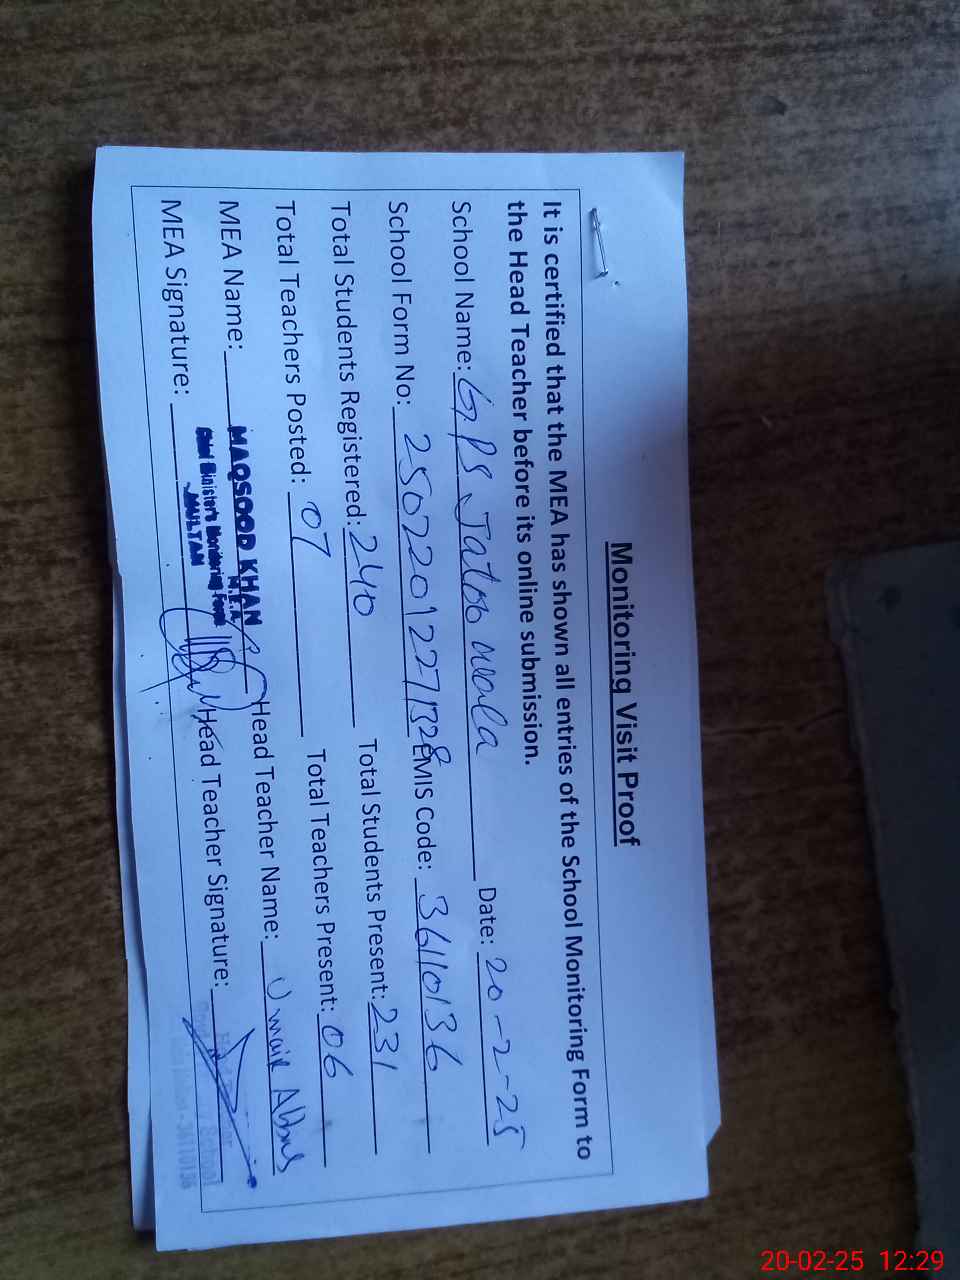 Monitoring Visit Proof
It is certified that the MEA has shown all entries of the School Monitoring Form to
the Head Teacher before its online submission.
School Name: GPS Jatoo wala Date: 20-2-25
School Form No: 25022012271328 EMIS Code: 36110136
Total Students Registered: 240 Total Students Present: 231
Total Teachers Posted: 07 Total Teachers Present: 06
MEA Name: MAQSOOD KHAN Head Teacher Name: Umair Abbas
M.E.A
MEA Signature: Chief Minister's Monitoring Force Head Teacher Signature:
MULTAN
36110136
20-02-25 12:29